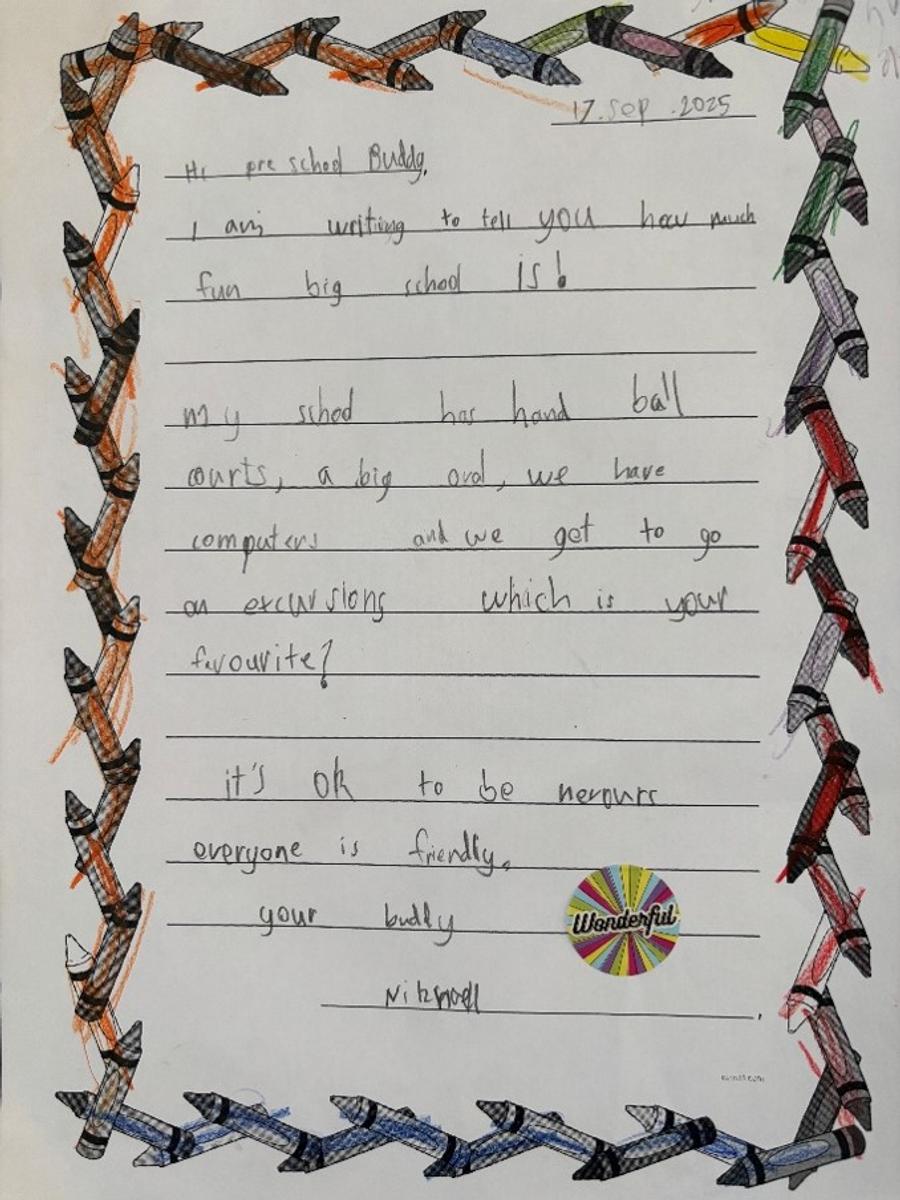 17. Sep . 2025
Hi pre school Buddy,
I am writing to tell you how much
fun big school is!
my school has hand ball
courts, a big oval, we have
computers and we get to go
on excursions which is your
favourite?
it's ok to be nervours
everyone is friendly.
your buddy
Wonderful